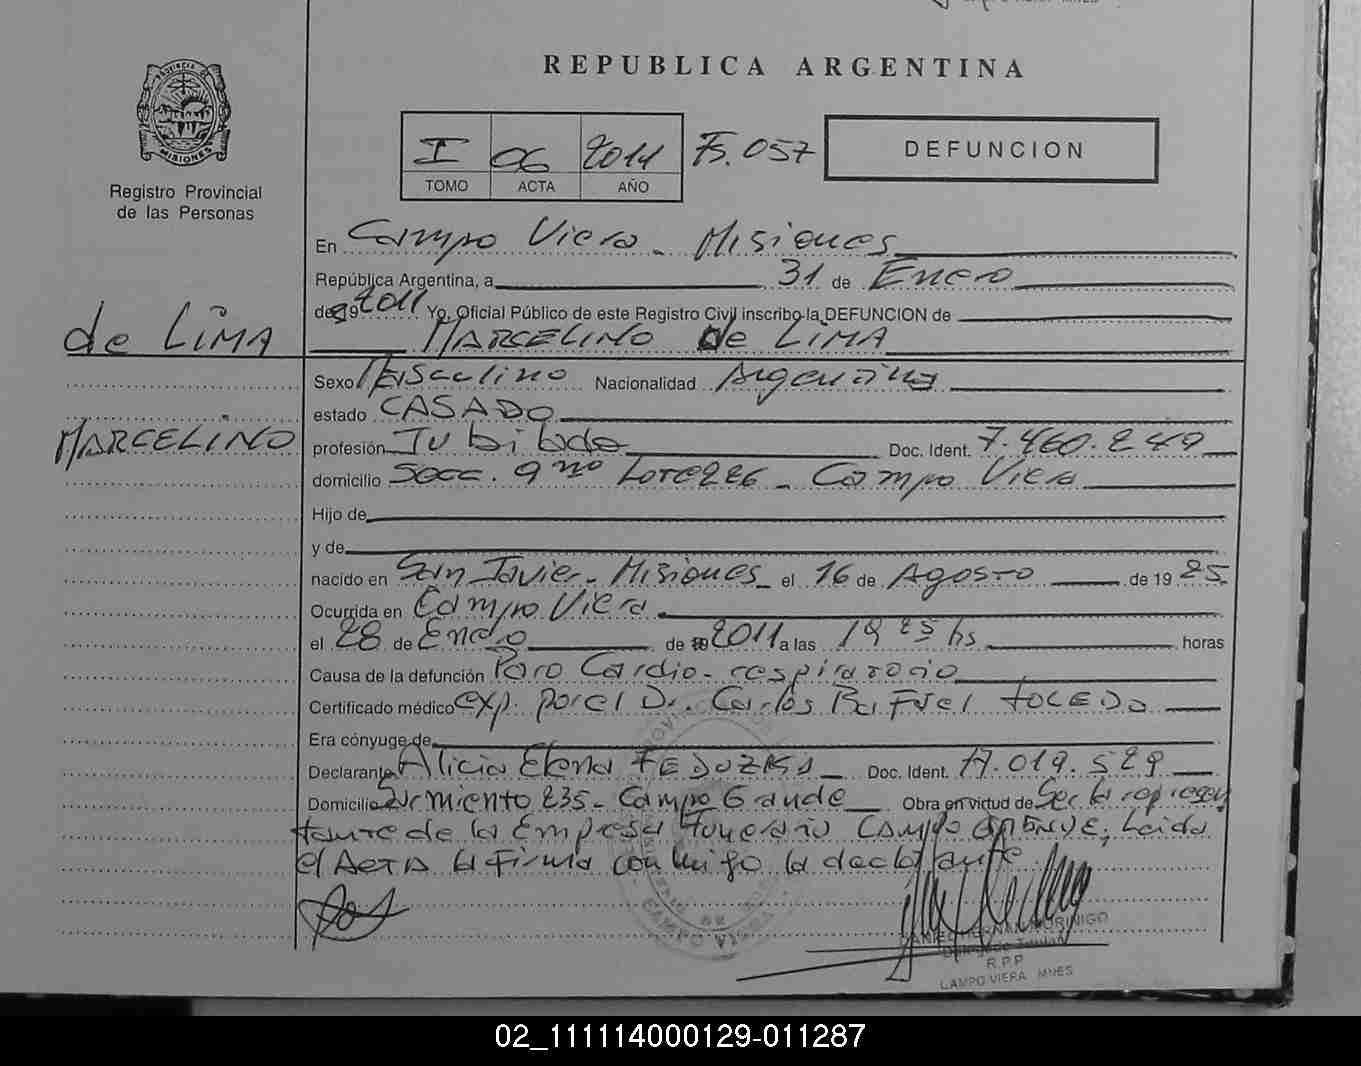 REPUBLICA ARGENTINA
PROVINCIA DE
MISIONES
Registro Provincial
de las Personas
I 06 2011 Fs. 057
TOMO ACTA AÑO
DEFUNCION
En Campo Viera - Misiones
República Argentina, a 31 de Enero
de 19 2011 Yo, Oficial Público de este Registro Civil inscribo la DEFUNCION de
de LIMA
MARCELINO de LIMA
Sexo Masculino Nacionalidad Argentina
estado CASADO
MARCELINO
profesión Jubilado Doc. Ident. 7.460.249
domicilio Secc. 9 no Lote 226 - Campo Viera
Hijo de
y de
nacido en San Javier - Misiones el 16 de Agosto de 19 25
Ocurrida en Campo Viera
el 28 de Enero de 19 2011 a las 19 25 hs horas
Causa de la defunción Paro Cardio-respiratorio
Certificado médico exp. por el Dr. Carlos Rafael TOLEDO
Era cónyuge de
Declarante Alicia Elena Doc. Ident. 17.019.529
Domicilio Sarmiento 235 - Campo Grande Obra en virtud de Ser la represen
tante de la Empresa Funeraria CAMPO Leida
el Acta la firma conmigo la declarante
CAMPO VIERA
DANIEL HERNAN MORINIGO
Delegado Titular
R.P.P
CAMPO VIERA MNES
02_111114000129-011287